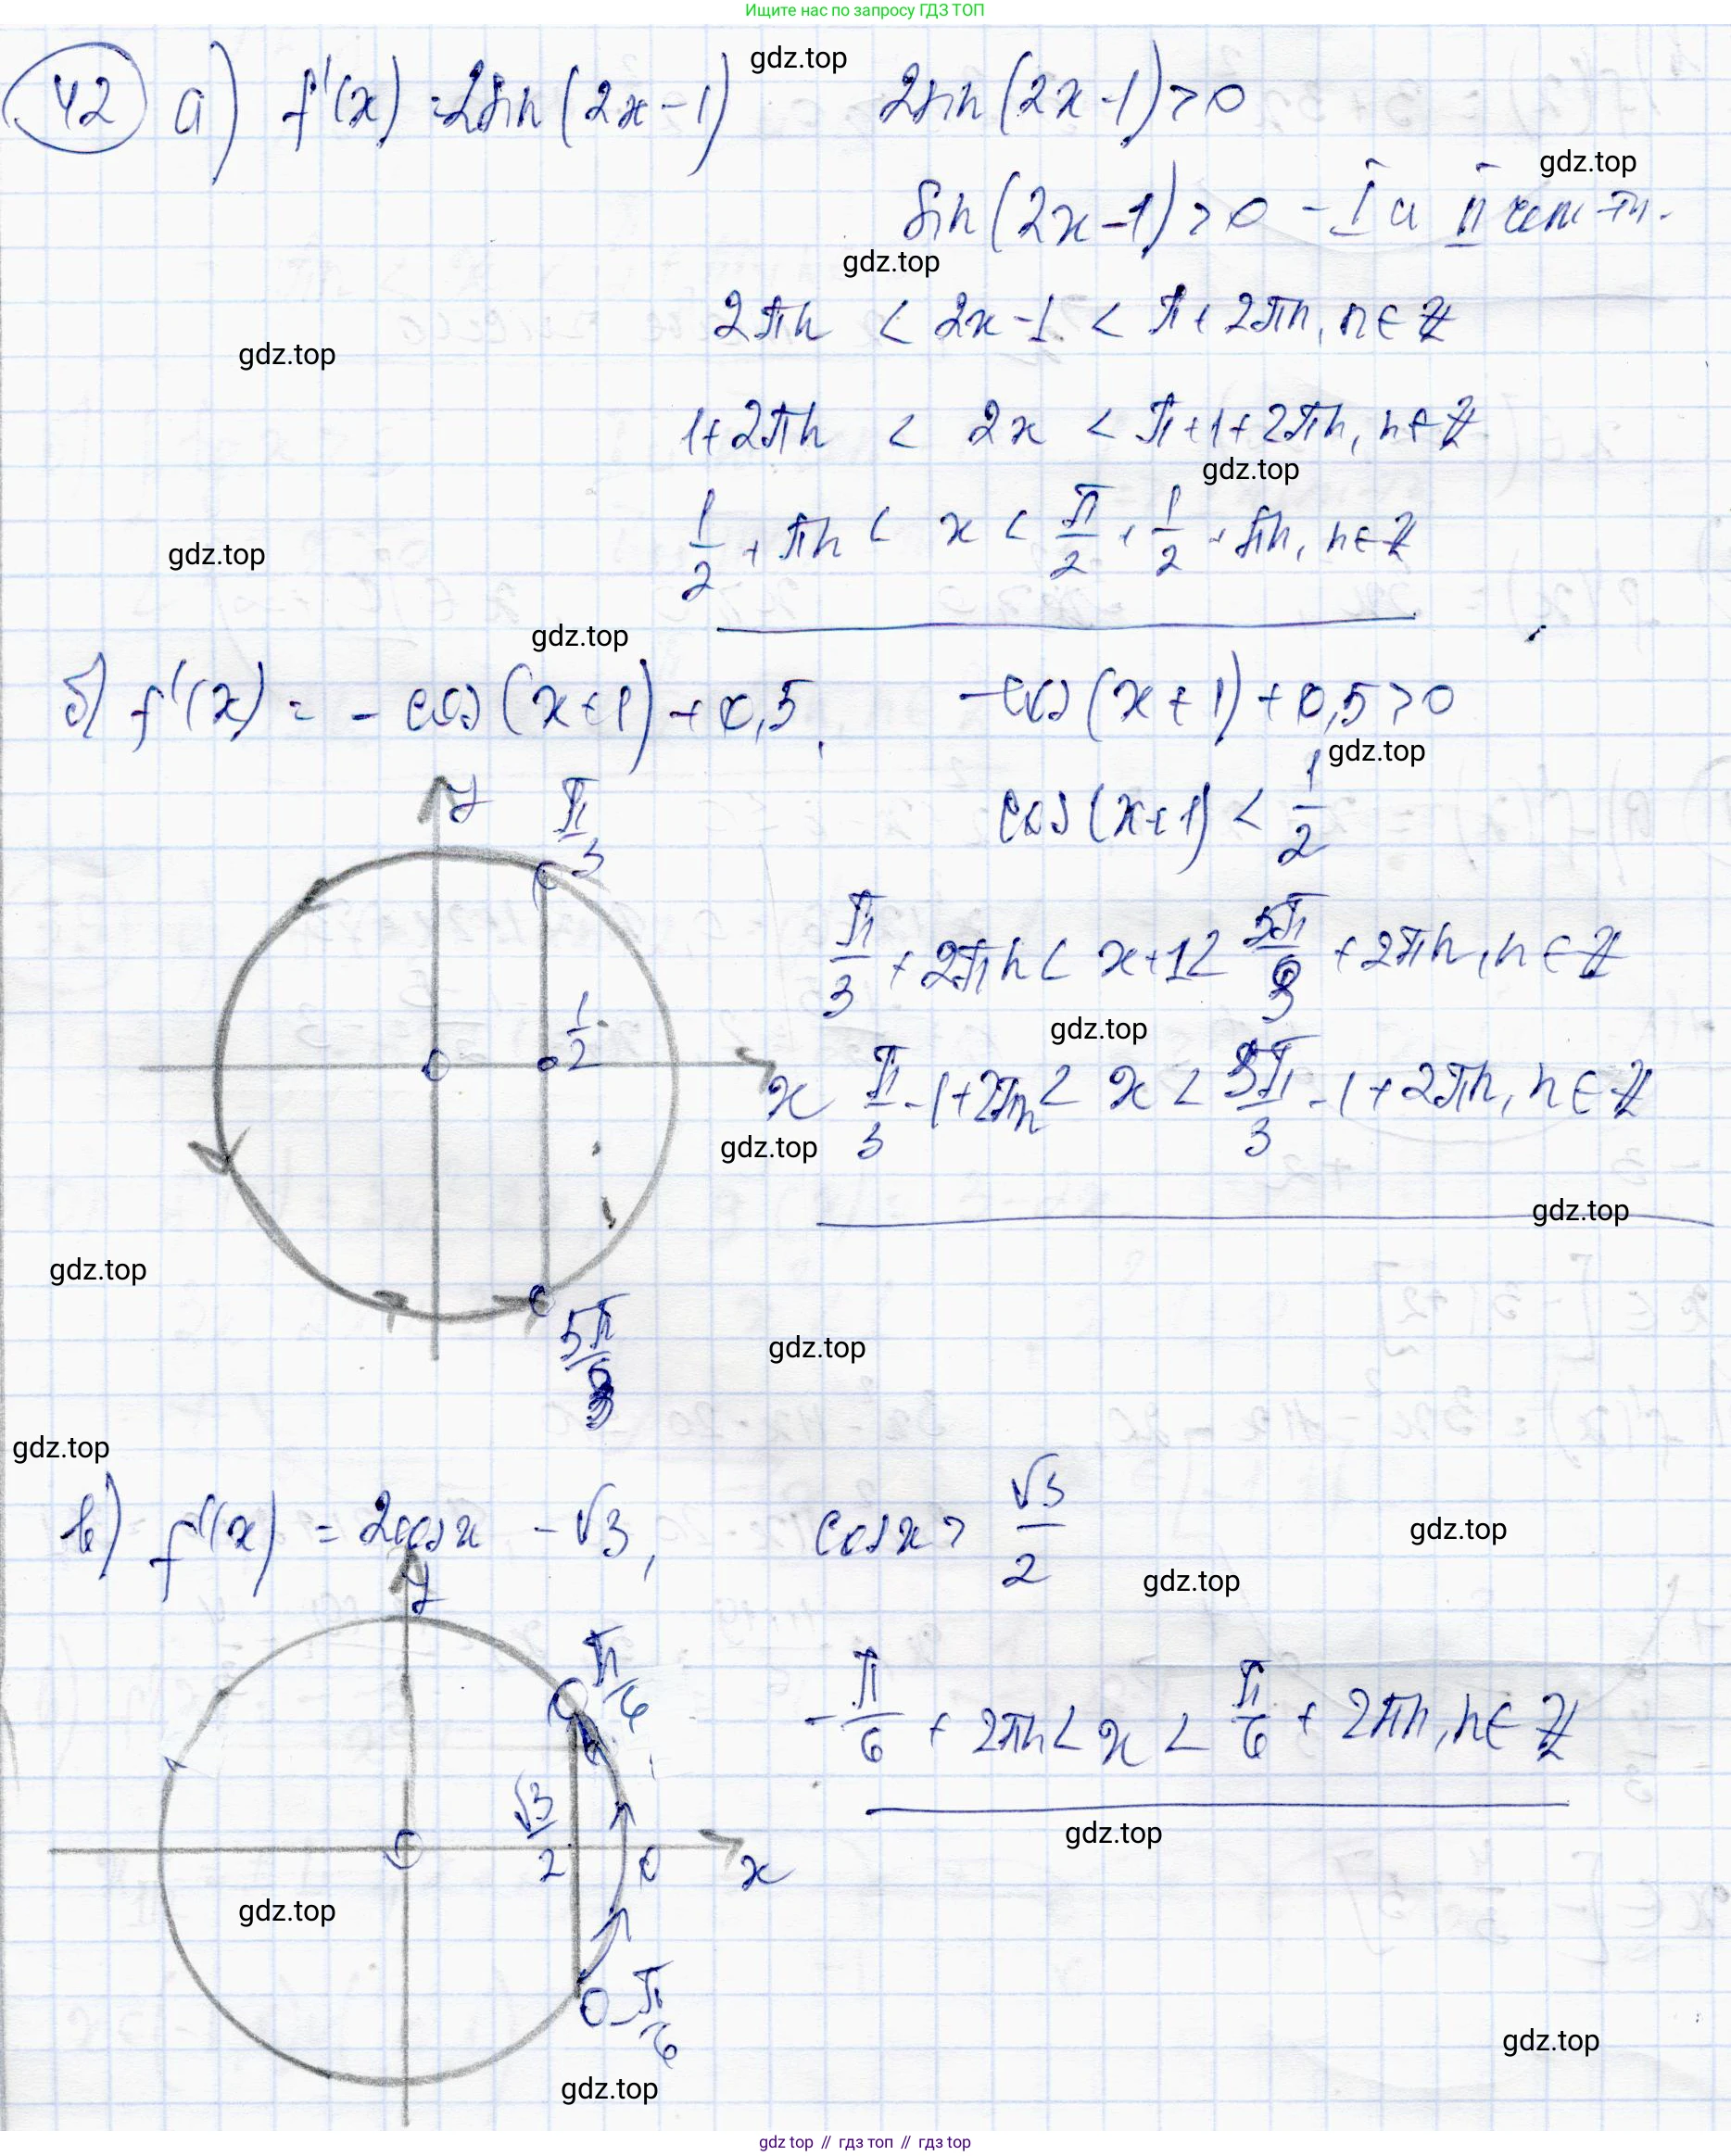 Ищите нас по запросу ГДЗ ТОП
42 а) f'(x) = 2sin(2x-1) 2sin(2x-1)>0
gdz.top
gdz.top
sin(2x-1)>0 - I и II
gdz.top
2πn < 2x-1 < π+2πn, n∈Z
gdz.top
1+2πn < 2x < π+1+2πn, n∈Z
gdz.top
1/2 + πn < x < π/2 + 1/2 + πn, n∈Z
gdz.top
gdz.top
б) f'(x) = - cos(x+1)+0,5. -cos(x+1)+0,5>0
gdz.top
y π/3 cos(x+1) < 1/2
π/3 + 2πn < x+1 < 5π/3 + 2πn, n∈Z
0 1/2 gdz.top
x π/3 -1+2πn < x < 5π/3 -1+2πn, n∈Z
gdz.top
gdz.top
gdz.top
5π/3
gdz.top
gdz.top
в) f'(x) = 2cosx - √3, cosx > √3/2
gdz.top
gdz.top
y π/6
-π/6 + 2πn < x < π/6 + 2πn, n∈Z
gdz.top
√3/2 0 x
gdz.top
-π/6
gdz.top
gdz.top
gdz top // гдз топ // gdz top